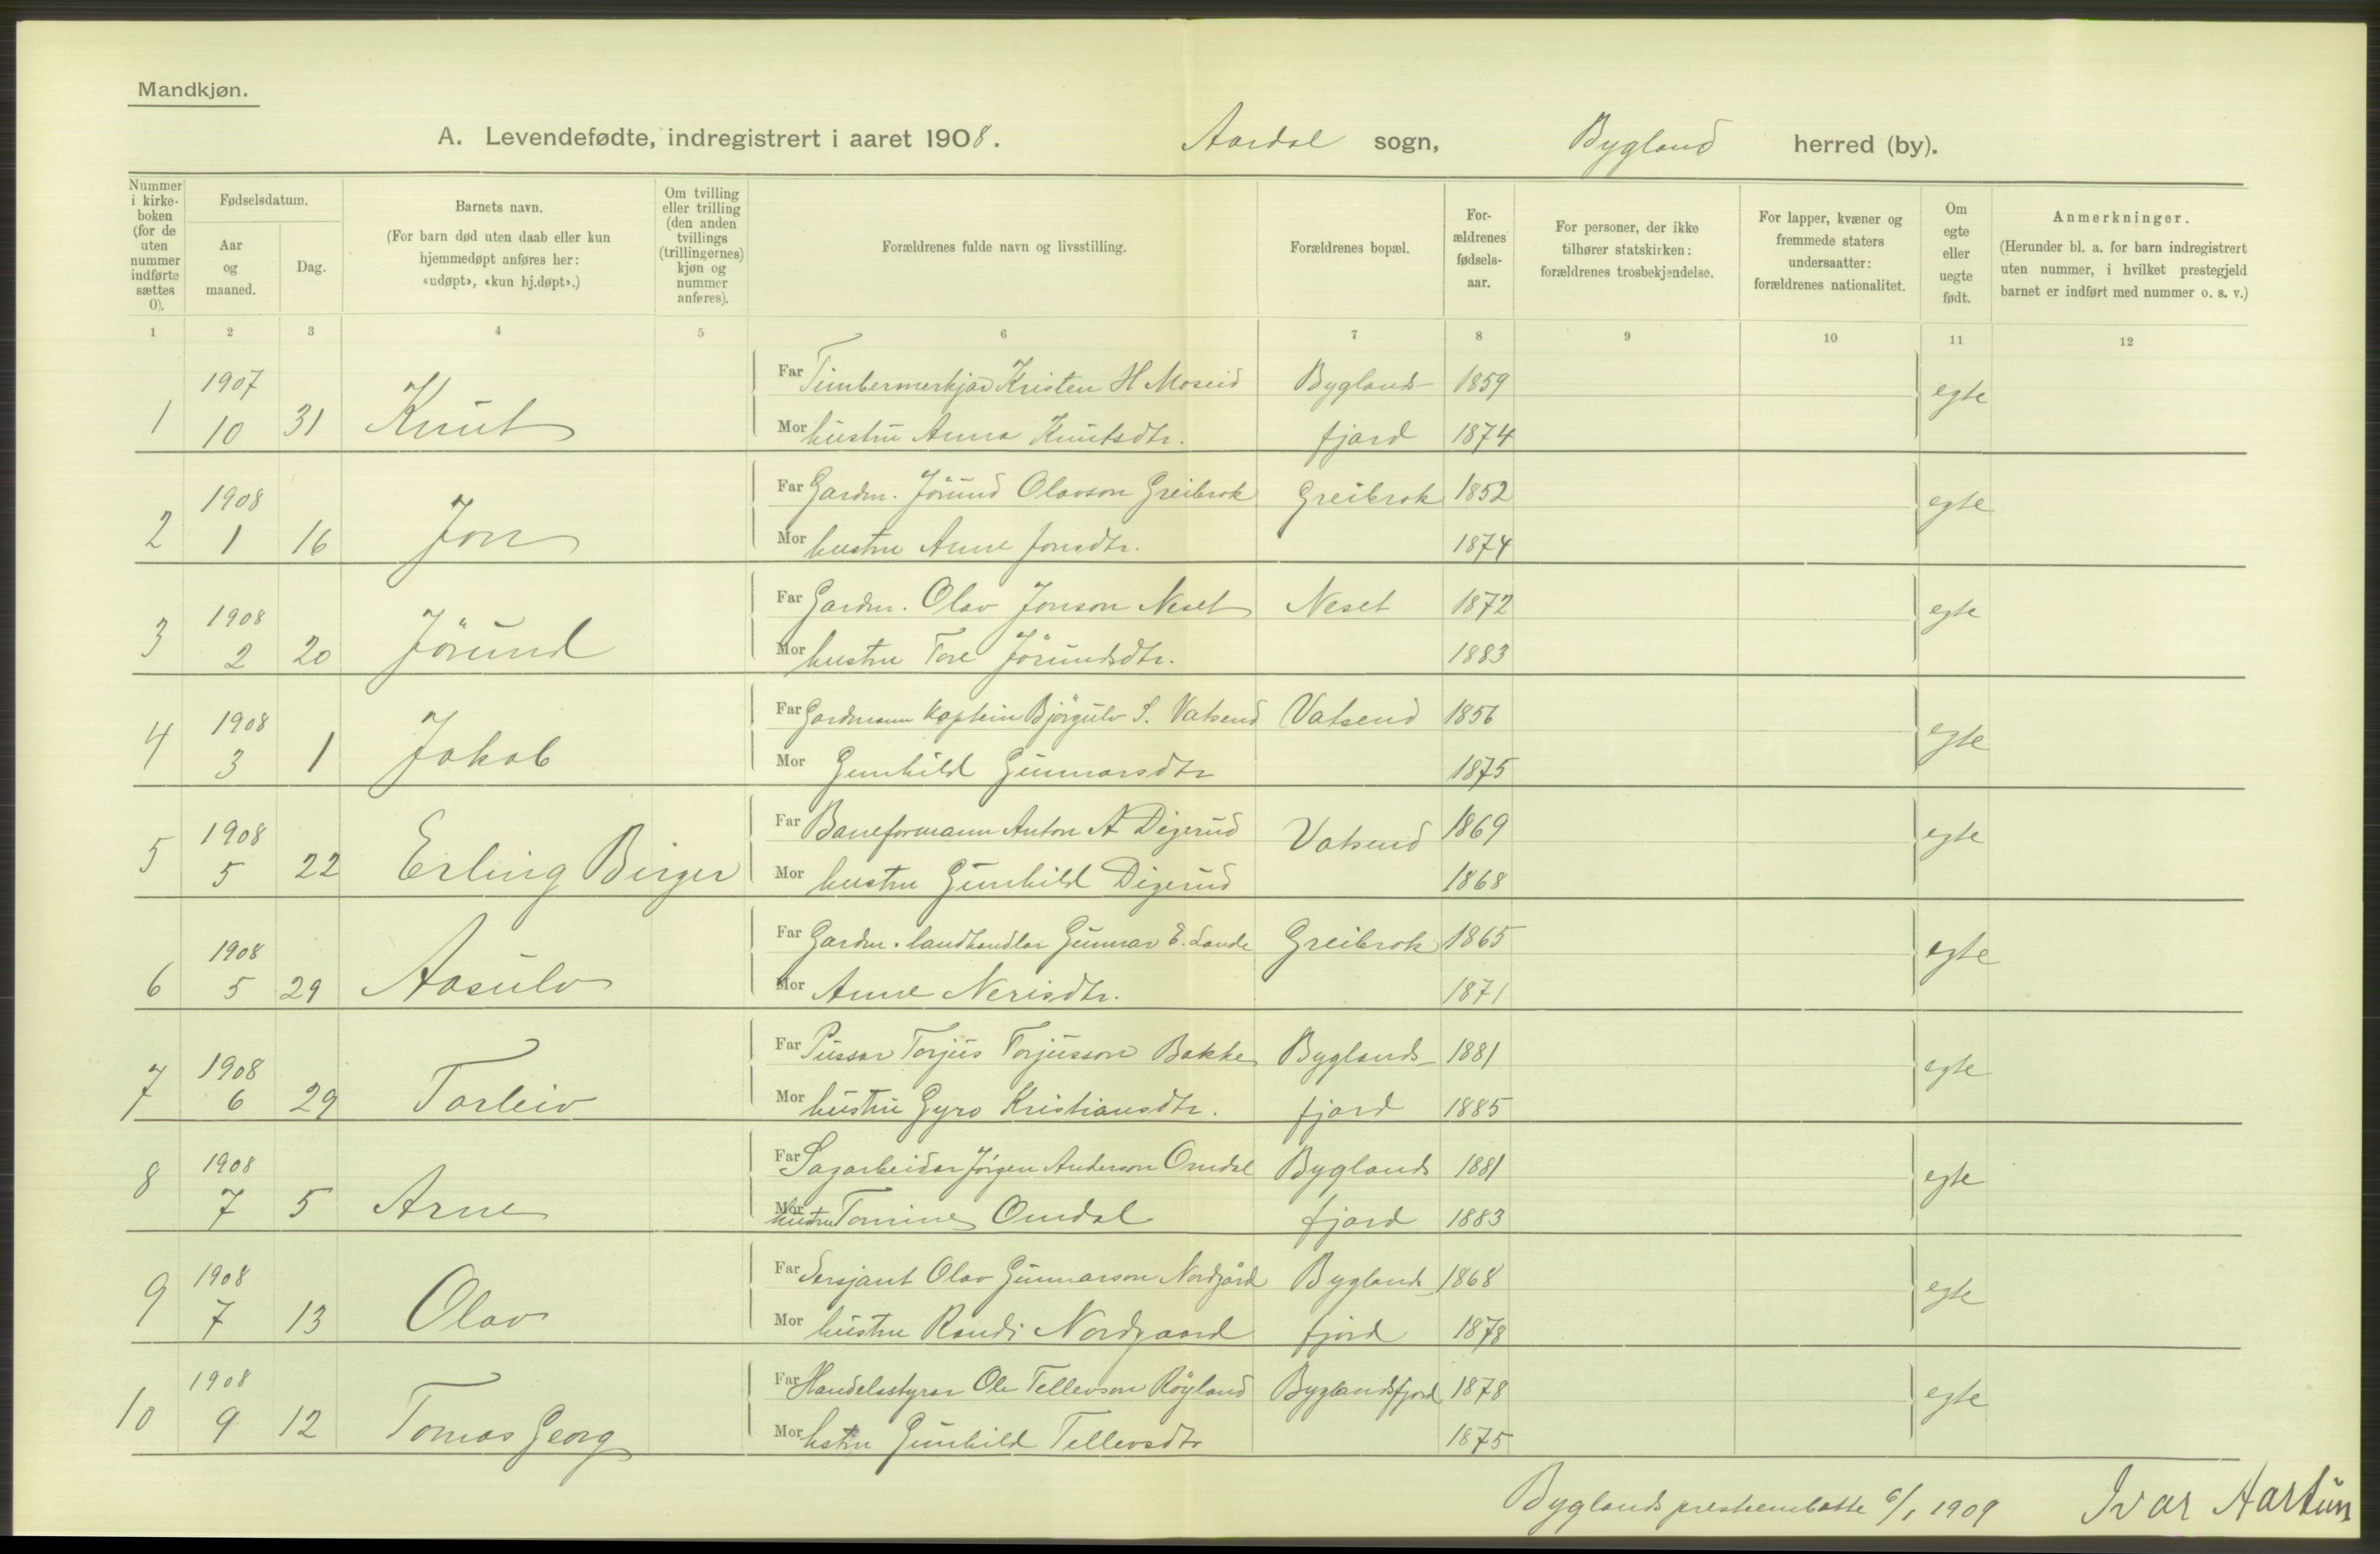 Mandkjøn.
A. Levendefødte, indregistrert i aaret 1908. Aardal sogn, Bygland herred (by).
Nummer i kirkeboken (for de uten nummer indførte sættes 0).
Fødselsdatum.
Aar og maaned.
Dag.
Barnets navn.
(For barn død uten daab eller kun hjemmedøpt anføres her: «udøpt», «kun hj.døpt».)
Om tvilling eller trilling (den anden tvillings (trillingernes) kjøn og nummer anføres).
Forældrenes fulde navn og livsstilling.
Forældrenes bopæl.
Forældrenes fødselsaar.
For personer, der ikke tilhører statskirken: forældrenes trosbekjendelse.
For lapper, kvæner og fremmede staters undersaatter: forældrenes nationalitet.
Om egte eller uegte født.
Anmerkninger.
(Herunder bl. a. for barn indregistrert uten nummer, i hvilket prestegjeld barnet er indført med nummer o. s. v.)
1 2 3 4 5 6 7 8 9 10 11 12
1907 Far Timbermerkjar Kristen H Moseid Byglands- 1859 egte
1 10 31 Knut Mor hustru Anna Knutsdtr. fjord 1874
1908 Far Gardm. Jörund Olavson Greibrok Greibrok 1852 egte
2 1 16 Jon Mor hustru Anne Jonsdtr. 1874
1908 Far Gardm. Olav Jonson Neset Neset 1872 egte
3 2 20 Jörund Mor hustru Tore Jörundsdtr. 1883
1908 Far Gardmann Kaptein Björgulv S. Vatsend Vatsend 1856 egte
4 3 1 Jakob Mor Gunhild Gunnarsdtr 1875
1908 Far Baneformann Anton A Digerud Vatsend 1869 egte
5 5 22 Erling Birger Mor hustru Gunhild Digerud 1868
1908 Far Gardm. landhandlar Gunnar E. Lande Greibrok 1865 egte
6 5 29 Aasulv Mor Anne Nerisdtr. 1871
1908 Far Pussar Torjus Torjusson Bakke Byglands- 1881 egte
7 6 29 Torleiv Mor hustru Gyro Kristiansdtr. fjord 1885
1908 Far Sagarbeidar Jörgen Anderson Omdal Byglands 1881 egte
8 7 5 Arne Mor hustru Tomine Omdal fjord 1883
1908 Far Sersjant Olav Gunnarson Nordgård Byglands- 1868 egte
9 7 13 Olav Mor hustru Randi Nordgaard fjord 1878
1908 Far Handelsstyrar Ole Tellevson Röyland Byglandsfjord 1878 egte
10 9 12 Tomas Georg Mor hstru Gunhild Tellevsdtr 1875
Byglands presteembætte 6/1 1909 Ivar Aartun